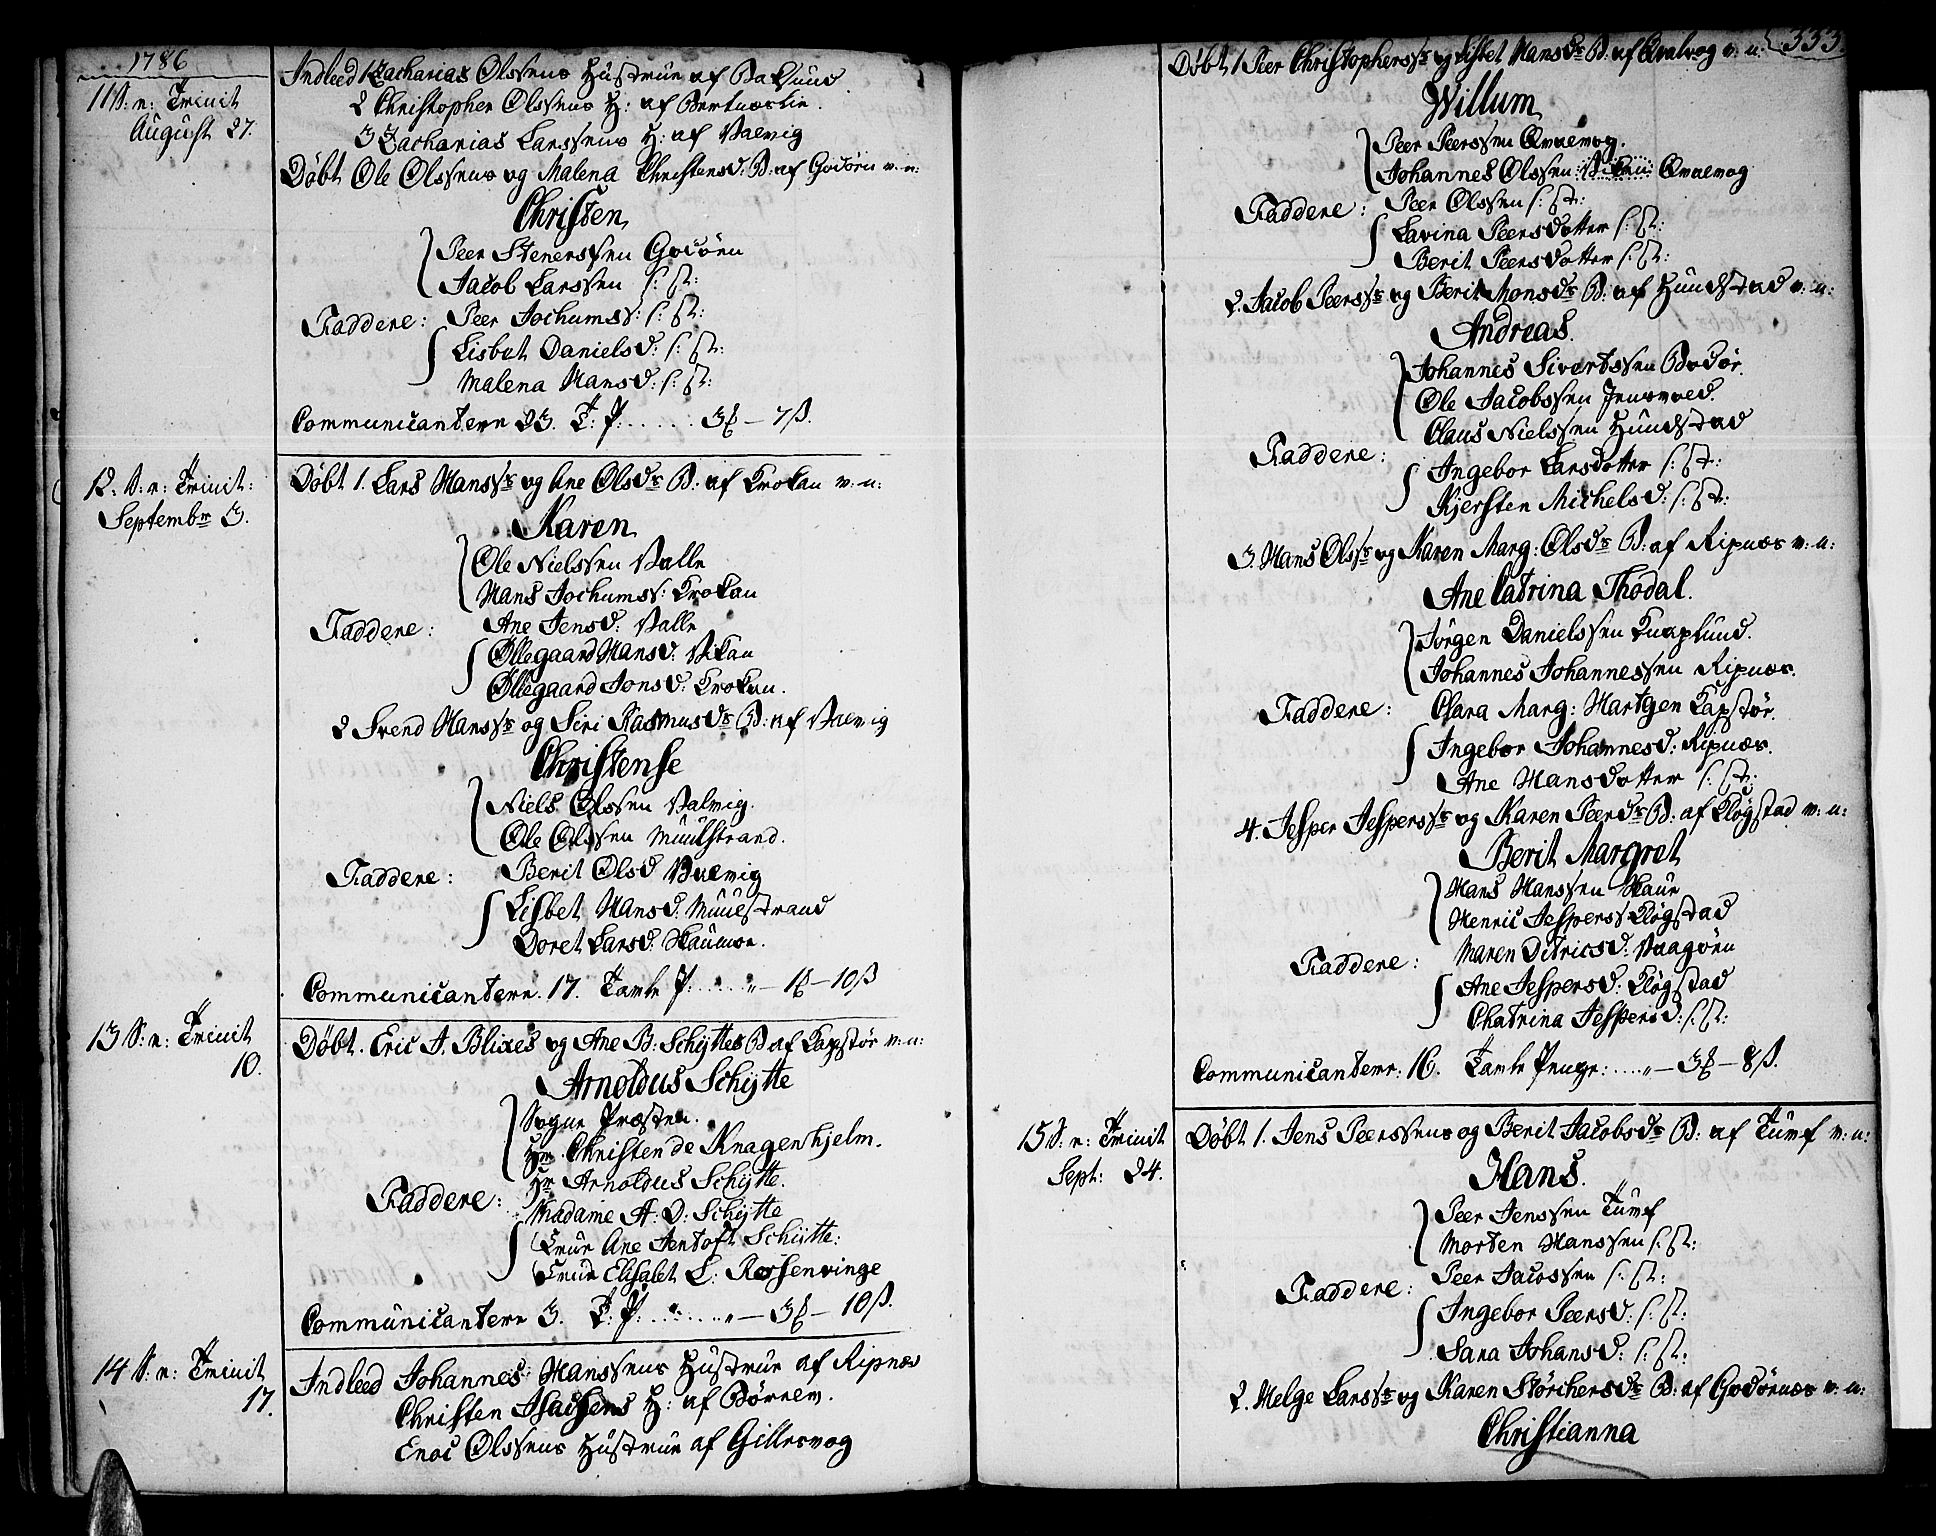 1786
11 S: n: Trinit
August 27.
Indleed 1 Zacharias Olssens Hustrue af
2 Christopher Olssens H: af
3 Zacharias Larssens H: af Valvig
Døbt Ole Olssens og Malena Christensd: B: af Godøen v: n:
Christen
Peer Stenerssen Godøen
Jacob Larssen S: St:
Faddere: Peer Jochums: S: St:
Lisbet Danielsd: S: St:
Malena Hansd: S: St:
Communicantere 23. T: P: ...... 3 – 7 ß.
12. S. n: Trinit:
Septembr 3.
Døbt 1. Lars Hanssr og Ane Olsdr B: af Krokan v: n:
Karen
Ole Nielssen Valle
Hans Jochumss: Krokan
Faddere: Ane Jensd: Valle
Øllegaard Hansd: Vikan
Øllegaard Jonsd: Krokan.
2 Svend Hanssr og Siri Rasmusdr B: af Valvig
Christense
Niels Olssen Valvig.
Ole Olssen Muulstrand.
Faddere: Berit Olsd Valvig
Lisbet Hansd. Muulstrand
Doret Larsd. Haumoe.
Communicantere. 17. Tavle P: ..... „ – 1 – 10 ß
13 S: n: Trinit
10.
Døbt. Eric A. Blixes og Ane B. Schyttes B af Kapstør v: n:
Arnoldus Schytte
Sogne Præsten.
Hr. Christen de Knagenhjelm.
Hr Arnoldus Schytte.
Faddere: Madame A: D: Schytte
Frue Ane Jentoft Schytte:
Frue Elisabet L: Rossenvinge
Communicantere 3. T: P: ...... „ – 3 – 10 ß.
14 S: n: Trinit
17.
Indleed Johannes Hanssens Hustrue af Ripnæs
Christen Isachsens H: af Børnem.
Enoc Olssens Hustrue af Gillesvog
333.
Døbt 1 Peer Christopherssr og Lisbet Hansdr B: af Qvalvog v: n:
Willum
Peer Peerssen Qvalvog.
Johannes Olssen Qvalvog
Faddere: Peer Olssen S: St:
Lavina Peersdotter S: St:
Berit Peersdotter S: St:
2. Jacob Peerssr og Berit Monsdr B: af Hundstad v: n:
Andreas.
Johannes Sivertssen Bodør.
Ole Jacobssen Jensvold.
Claus Nielssen Hundstad
Faddere: Ingebor Larsdotter S: St:
Kjersten Michelsd: S: St:
3. Hans Olssr og Karen Marg: Olsdr B: af Ripnæs v: n:
Ane Catrina Thodal.
Jørgen Danielssen Knaplund.
Johannes Johannessen Ripnæs.
Faddere: Clara Marg: Hartgen Kapstør.
Ingebor Johannesd: Ripnæs.
Ane Hansdotter S: St:
4. Jesper Jesperssr og Karen Peerdr B: af Kløgstad v: n:
Berit Margret
Hans Hanssen Skaue
Henric Jesperss Kløgstad
Faddere: Maren Ditricsd: Vaagøen
Ane Jespersd: Kløgstad
Chatrina Jespersd: S: St:
Communicantere: 16. Tavle Penge: .... „ – 3 – 8 ß.
15 S: n: Trinit
Sept: 24.
Døbt 1. Jens Peerssens og Berit Jacobsdr B: af Tuuf v: n:
Hans.
Peer Jenssen Tuuf
Morten Hanssen S: St:
Faddere: Peer Jacobssen S: St:
Ingebor Peersd: S: St:
Sara Johansd: S: St:
2. Helge Larssr og Karen Størchersdr B: af Godøenæs v: n:
Christianna